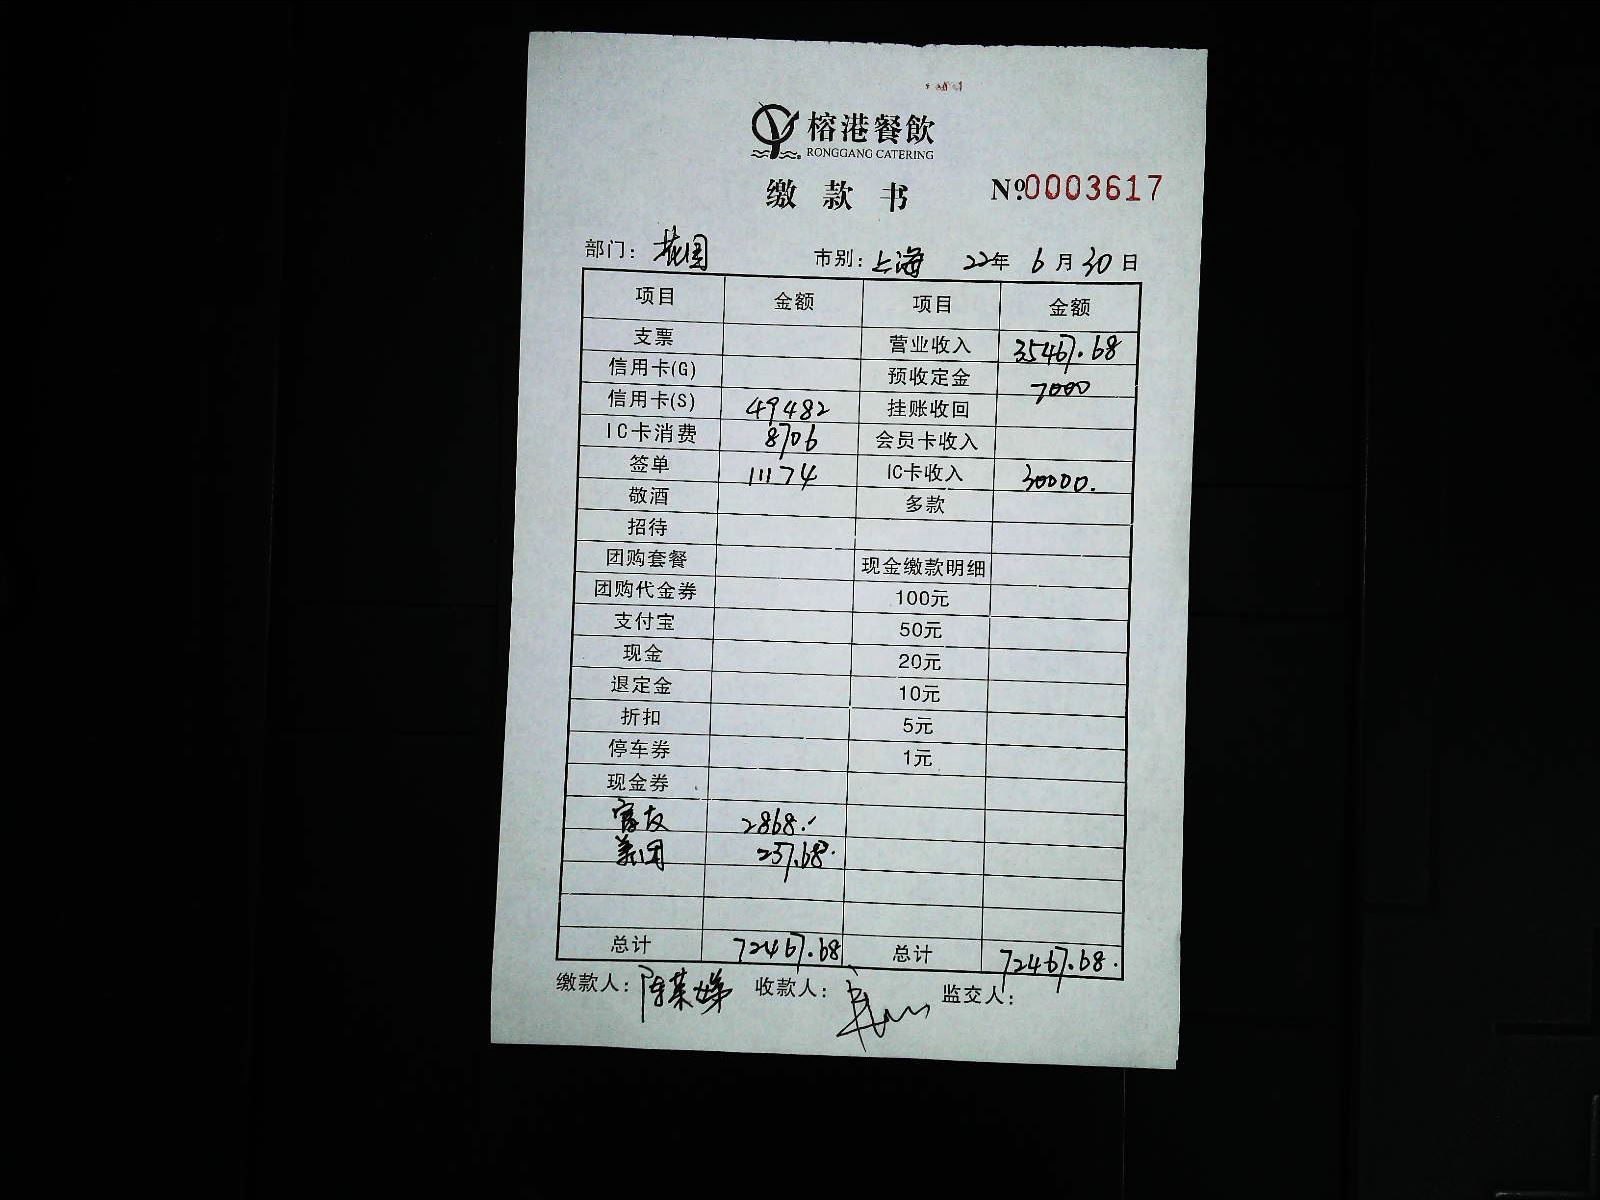 榕港餐飲
RONGGANG CATERING
缴款书 №0003617
部门: 花园 市别: 上海 22年 6月30日
项目 金额 项目 金额
支票 营业收入 35467.68
信用卡(G) 预收定金 7000
信用卡(S) 49482 挂账收回
IC卡消费 8706 会员卡收入
签单 11174 IC卡收入 30000.
敬酒 多款
招待
团购套餐 现金缴款明细
团购代金券 100元
支付宝 50元
现金 20元
退定金 10元
折扣 5元
停车券 1元
现金券
富友 2868.-
美团 237.68.
总计 72467.68 总计 72467.68.
缴款人: 陈荣娣 收款人: 监交人: